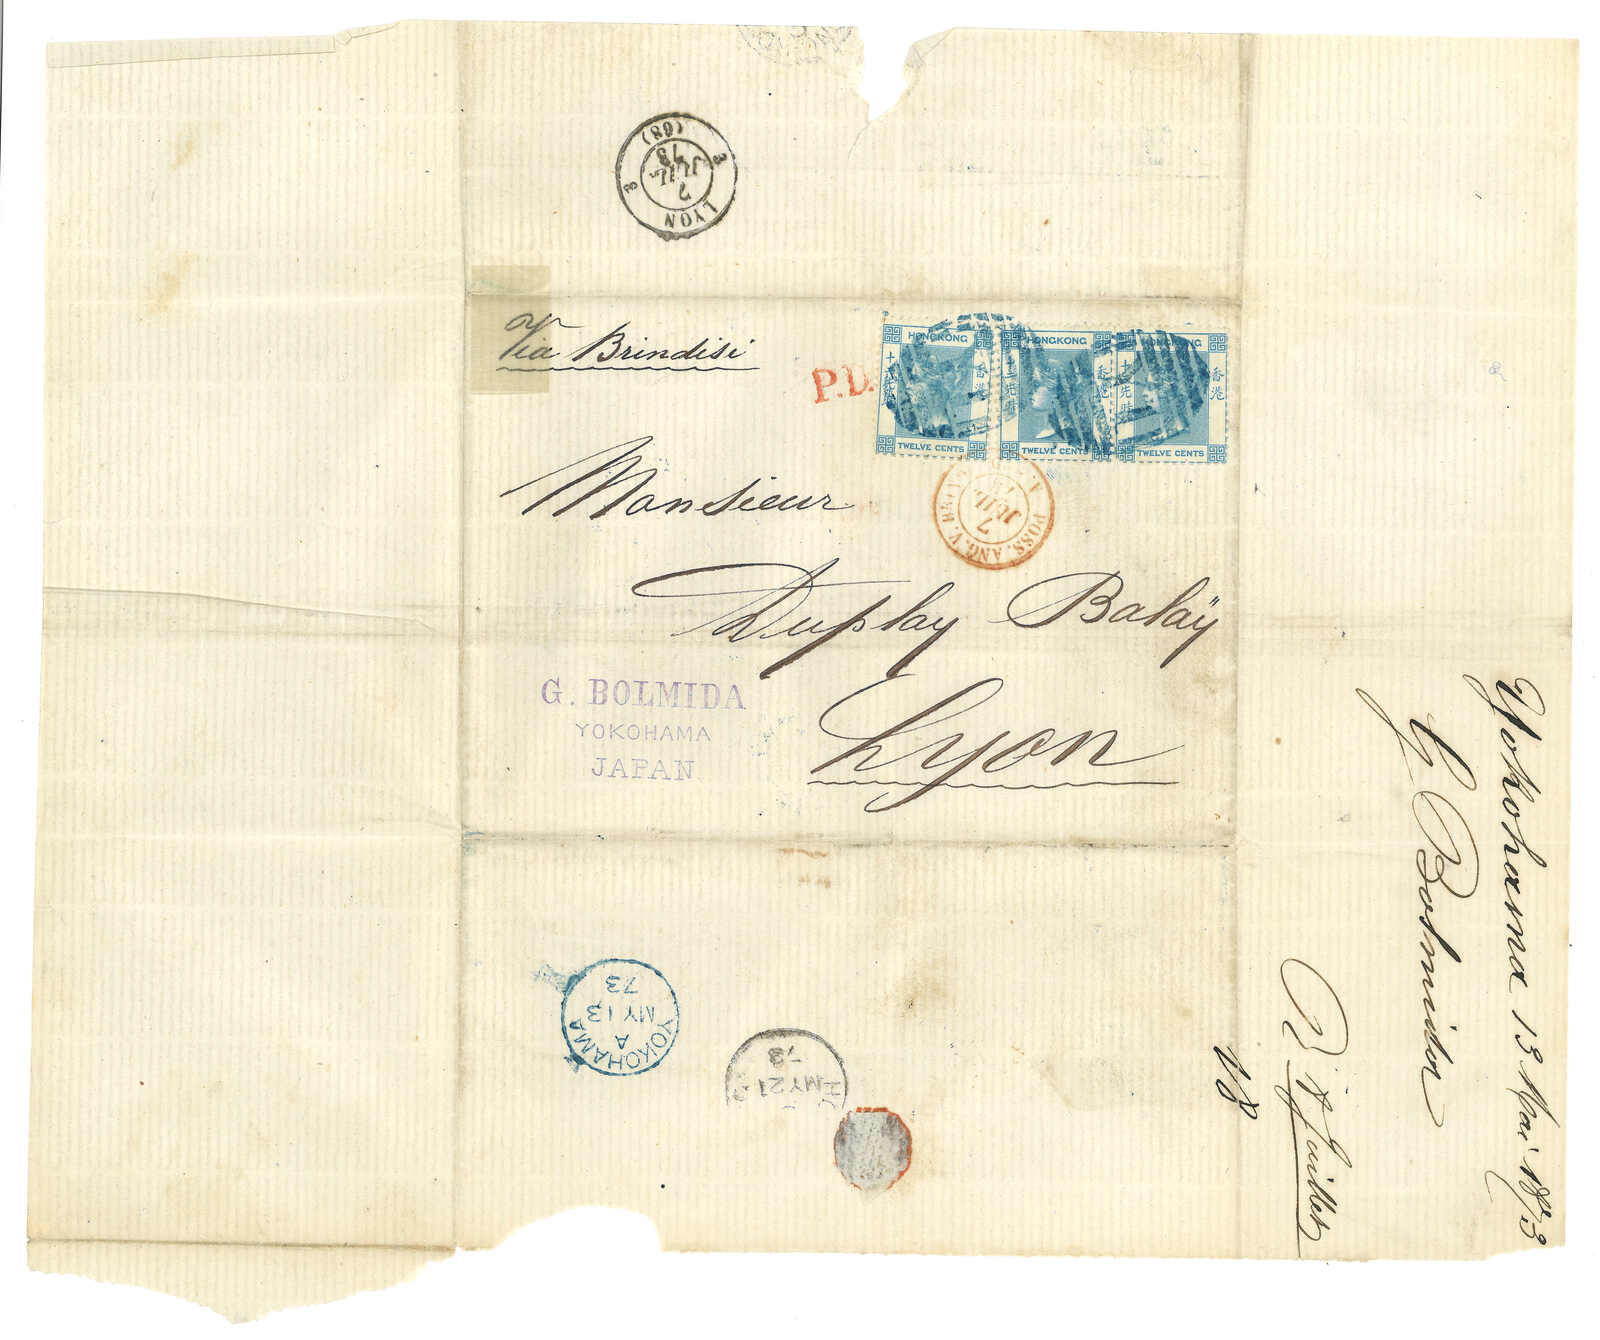 LYON
3 3
7
JUIL
73
(68)
Via Brindisi
P.D.
HONGKONG
香港
TWELVE CENTS
HONGKONG
香港
TWELVE CENTS
HONGKONG
香港
TWELVE CENTS
POSS. ANG. V. BRIND
7
JUIL
73
Monsieur
Duplay Balaÿ
Lyon
G. BOLMIDA
YOKOHAMA
JAPAN
YOKOHAMA
A
MY 13
73
MY 21
73
Yokohama 13 Mai 1873
G Bolmida
R. 7 Juillet